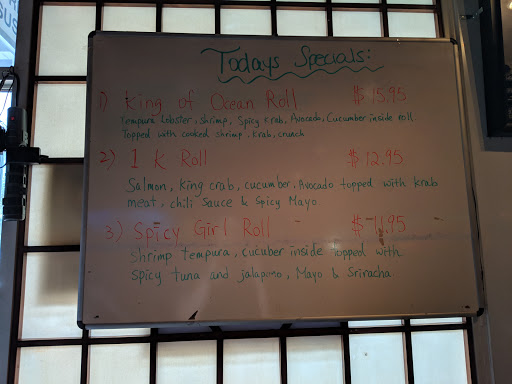 Todays Specials:
1) King of Ocean Roll $15.95
Tempura Lobster, shrimp, spicy krab, Avocado, Cucumber inside roll
Topped with cooked shrimp, krab, crunch
2) 1 K Roll $12.95
Salmon, king crab, cucumber, Avocado topped with krab
meat, chili Sauce & Spicy Mayo
3) Spicy Girl Roll $11.95
Shrimp tempura, cucuber inside topped with
Spicy tuna and jalapeno, Mayo & Sriracha